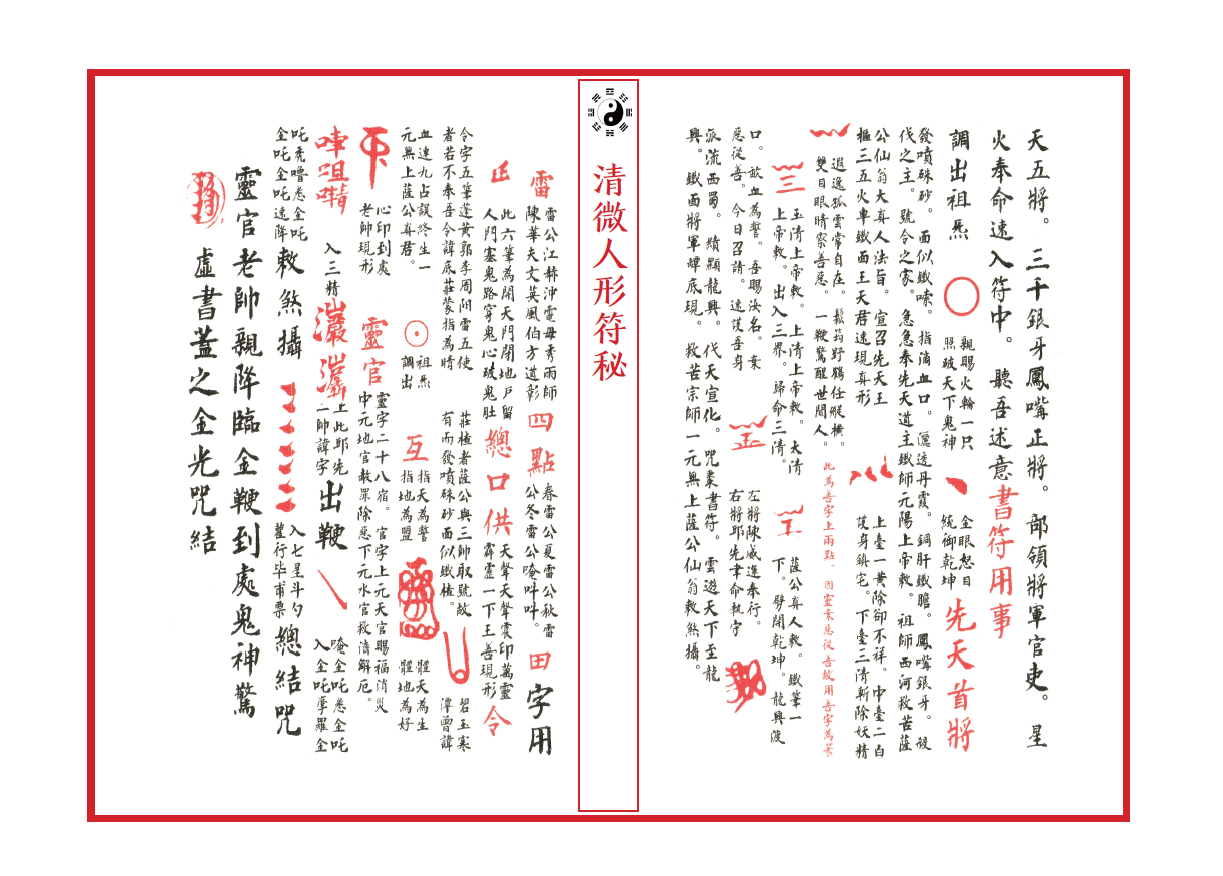 天五將。三千銀牙鳳嘴正將。部領將軍官吏。星
火奉命速入符中。聽吾述意書符用事
調出祖炁
親賜火輪一只
照破天下鬼神
金眼怒目
統御乾坤
先天首將
發噴硃砂。面似鐵嗦。指滴血口。儷透丹霞。銅肝鐵膽。鳳嘴銀牙。殺
伐之主。號令之家。急急奉先天道主鐵師元陽上帝敕。祖師西河救苦薩
公仙翁大真人法旨。宣召先天王
樞三五火車鐵面王天君速現真形
上臺一黃除卻不祥。中臺二白
護身鎮宅。下臺三清斬除妖精
遐逸孤雲常自在。鬆筠野鶴任縱橫。
雙目眼睛察善惡。一鞭驚醒世間人。
此為吾字上兩點。因靈棄惡從善故用吾字為英
玉清上帝敕。上清上帝敕。太清
上帝敕。出入三界。歸命三清。
薩公真人敕。鐵筆一
下。劈開乾坤。龍興波
口。歃血為誓。吾賜汝名。棄
惡從善。今日召請。速護吾身
左將陳威進奉行。
右將邱先聿命執字
派流西蜀。續顯龍興。代天宣化。咒棗書符。雲遊天下至龍
興。鐵面將軍罈底現。救苦宗師一元無上薩公仙翁敕煞攝。
清微人形符秘
雷
雷公江赫沖電母秀雨師
陳華天文英風伯方道彰
四點
春雷公夏雷公秋雷
公冬雷公唵吽吽。
田字用
此六筆為開天門閉地戶留
人門塞鬼路穿鬼心破鬼肚
總口供
天聲天聲震印萬靈
霹靂一下王善現形
令
令字五筆蓬黃郭李周附雷五使
者若不奉吾令諱底莊蒙指為睛
莊楂者薩公與三帥取號故
有而發噴硃砂面似鐵楂。
碧玉寒
潭曾諱
血速九占誤終生一
元無上薩公真君。
祖炁
調出
互
指天為誓
指地為盟
體天為生
體地為好
心印到處
老帥現形
靈官
靈字二十八宿。官字上元天官賜福消災
中元地官赦罪除惡下元水官救濟解厄。
入三精
上此邱先
二帥諱字
出鞭
唵金吒悉金吒
入金吒摩羅金
吒禿嚕悉金吒
金吒金吒速降
敕煞攝
入七星斗勺
魓行毕甫票
總結咒
靈官老帥親降臨金鞭到處鬼神驚
虛書蓋之金光咒結